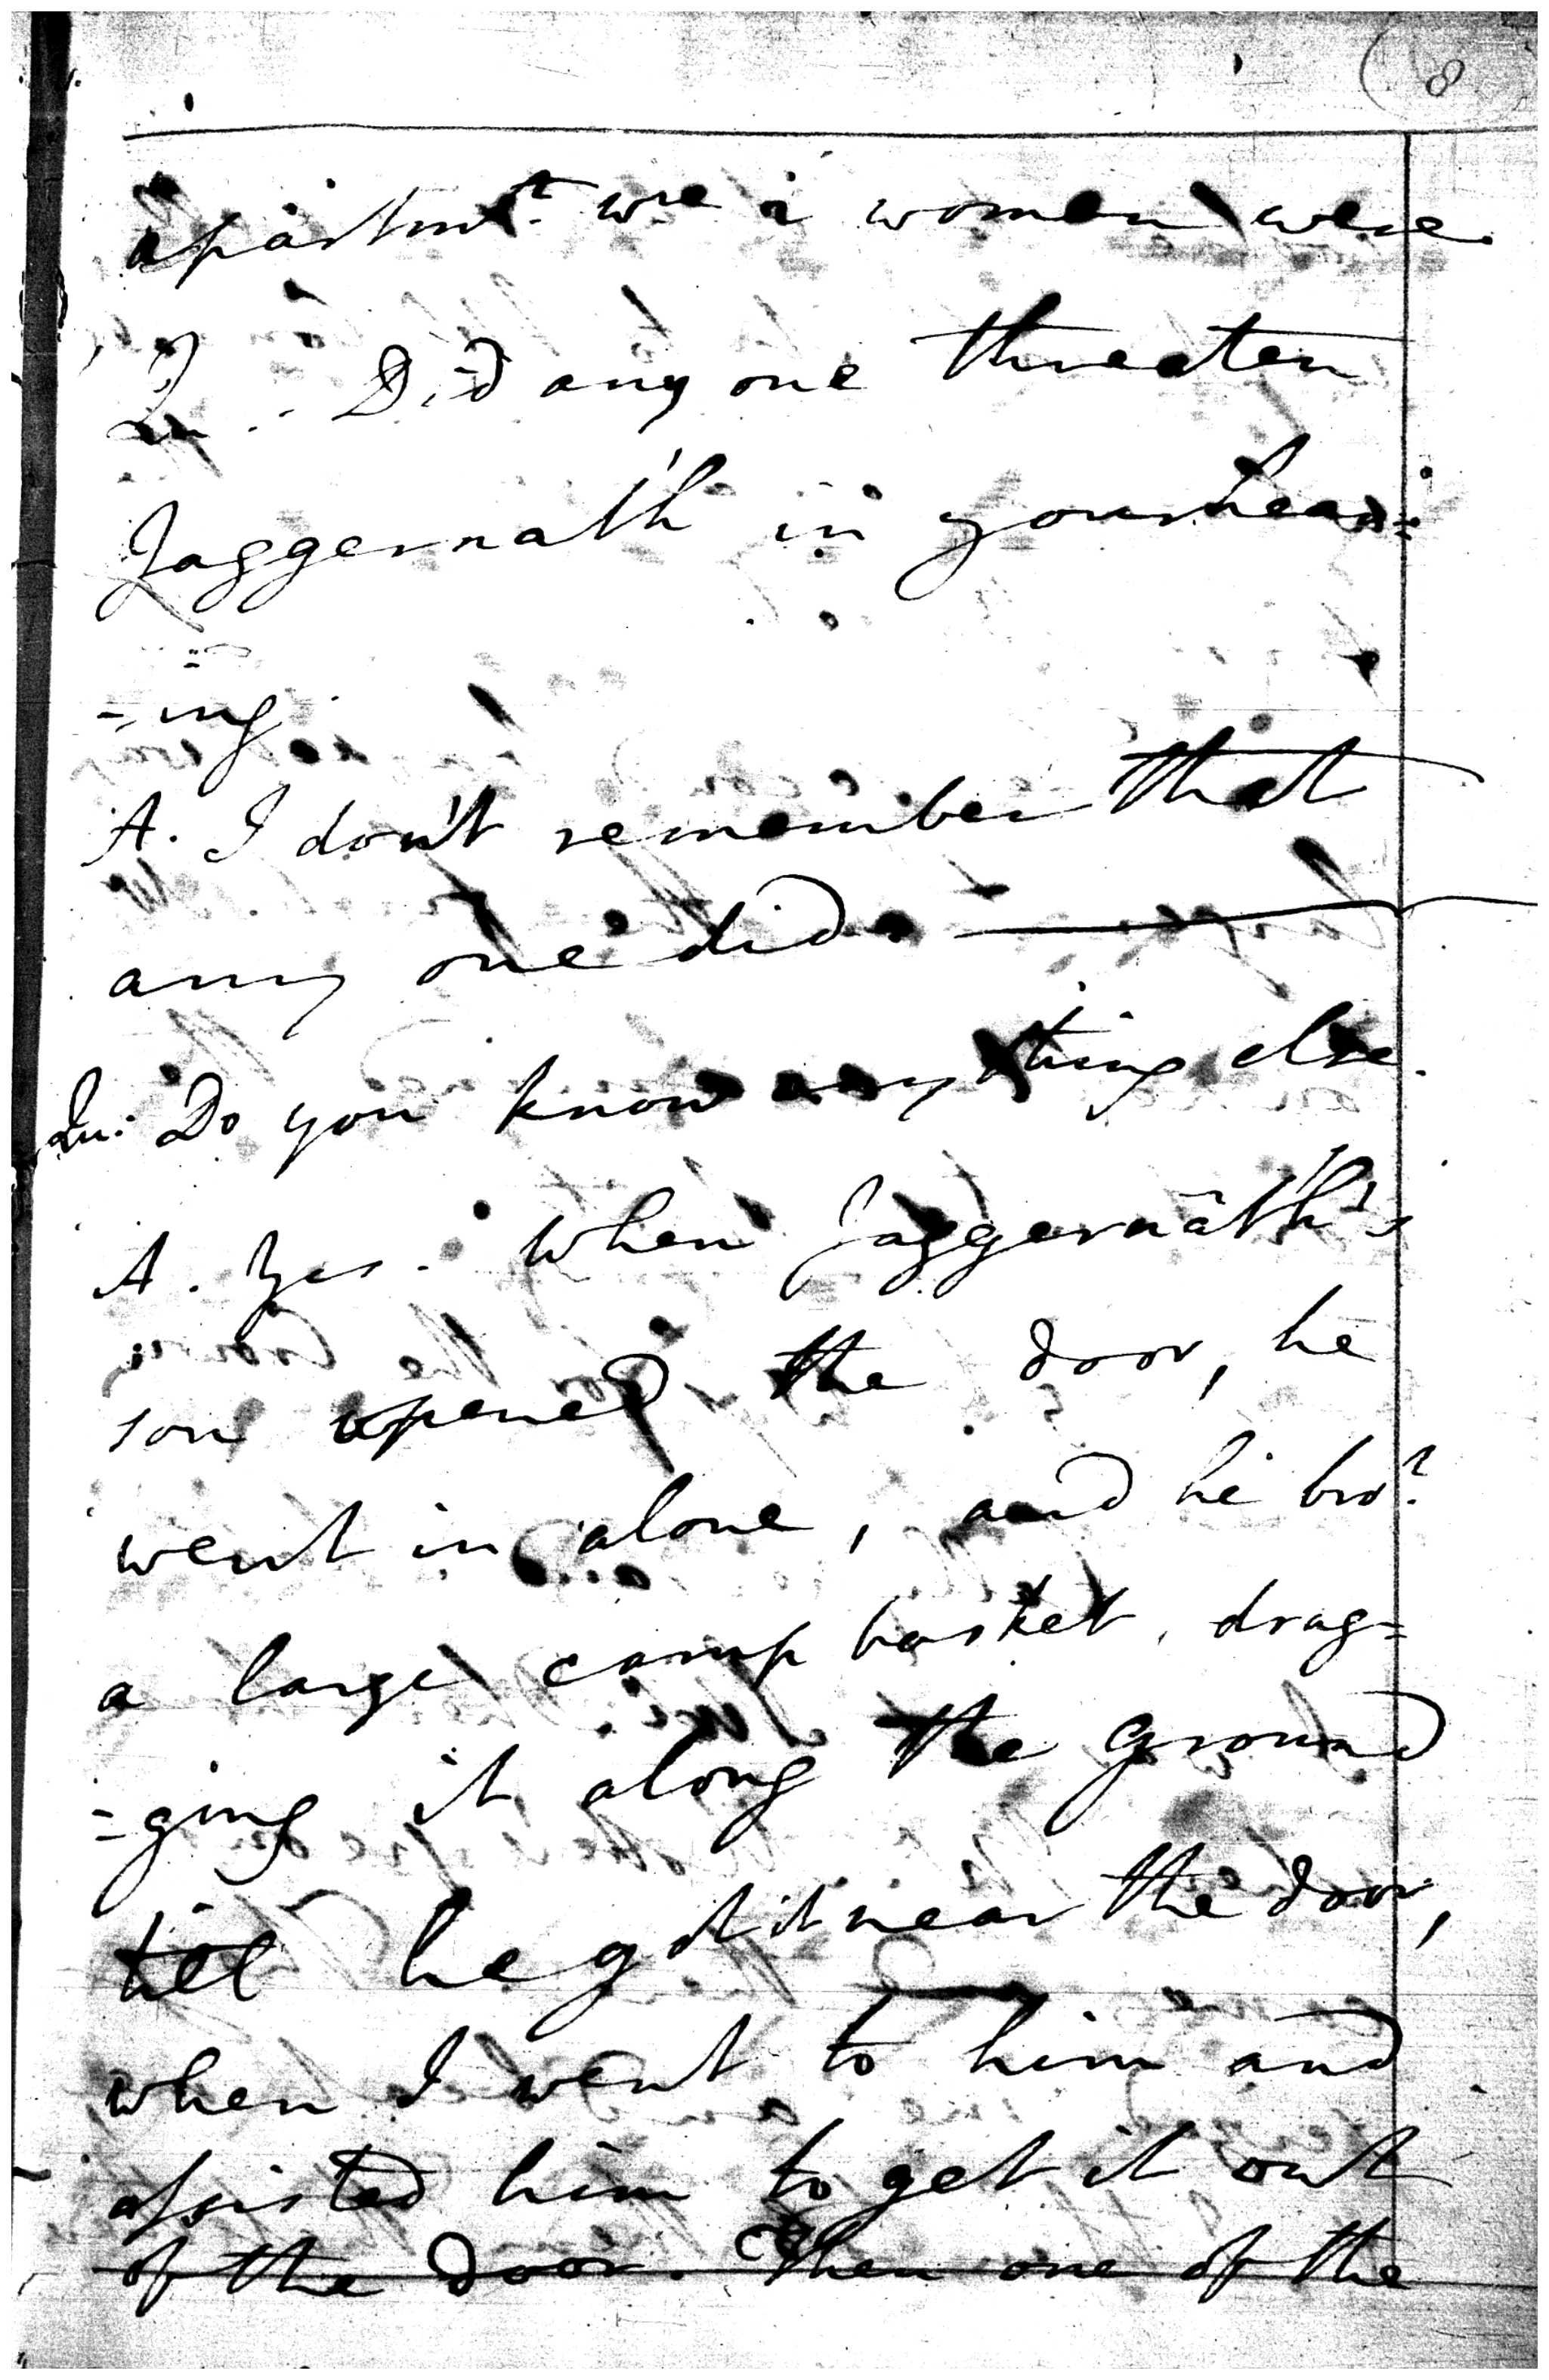 (8)
apartmt. wre a women were.
Qu. Did any one threaten
Jaggernath in your hear=
=ing
A. I don't remember that
any one did.
Qu: Do you know any thing else.
A. Yes. When Jaggernâth's
son opened the door, he
went in alone, and he brot.
a large camp basket, drag=
=ging it along the ground
till he got it near the door,
when I went to him and
assisted him to get it out
of the door. Then one of the